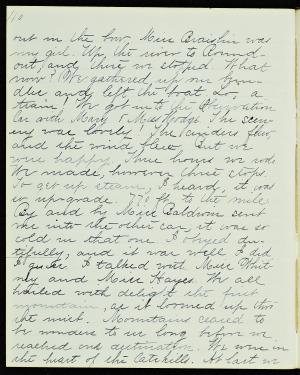 110
out in the bow. Miss Braislin was
my girl. Up the river to Round-
out, and there we stopped. What
now? We gathered up our bun-
dles and left the boat. Lo, a
train! We got into the Observation
Car with Mary & Miss Hodge. The scen-
ery was lovely! The cinders flew,
and the wind flew, But we
were happy. Three hours we rode
We made, however three stops.
To get up steam, I heard, it was
so up-grade. 170 ft. to the mile
By and by Miss Baldwin sent
me into the other car, it was so
cold in that one. I obeyed du-
tifully, and it was well I did
I guess. I talked with Miss Whit-
ney and Miss Hayes. We all
hailed with delight the first
mountain, as it loomed up thro
the mist. Mountains ceased to
be wonders to us long before we
reached our destination. We were in
the heart of the Catskills. At last we